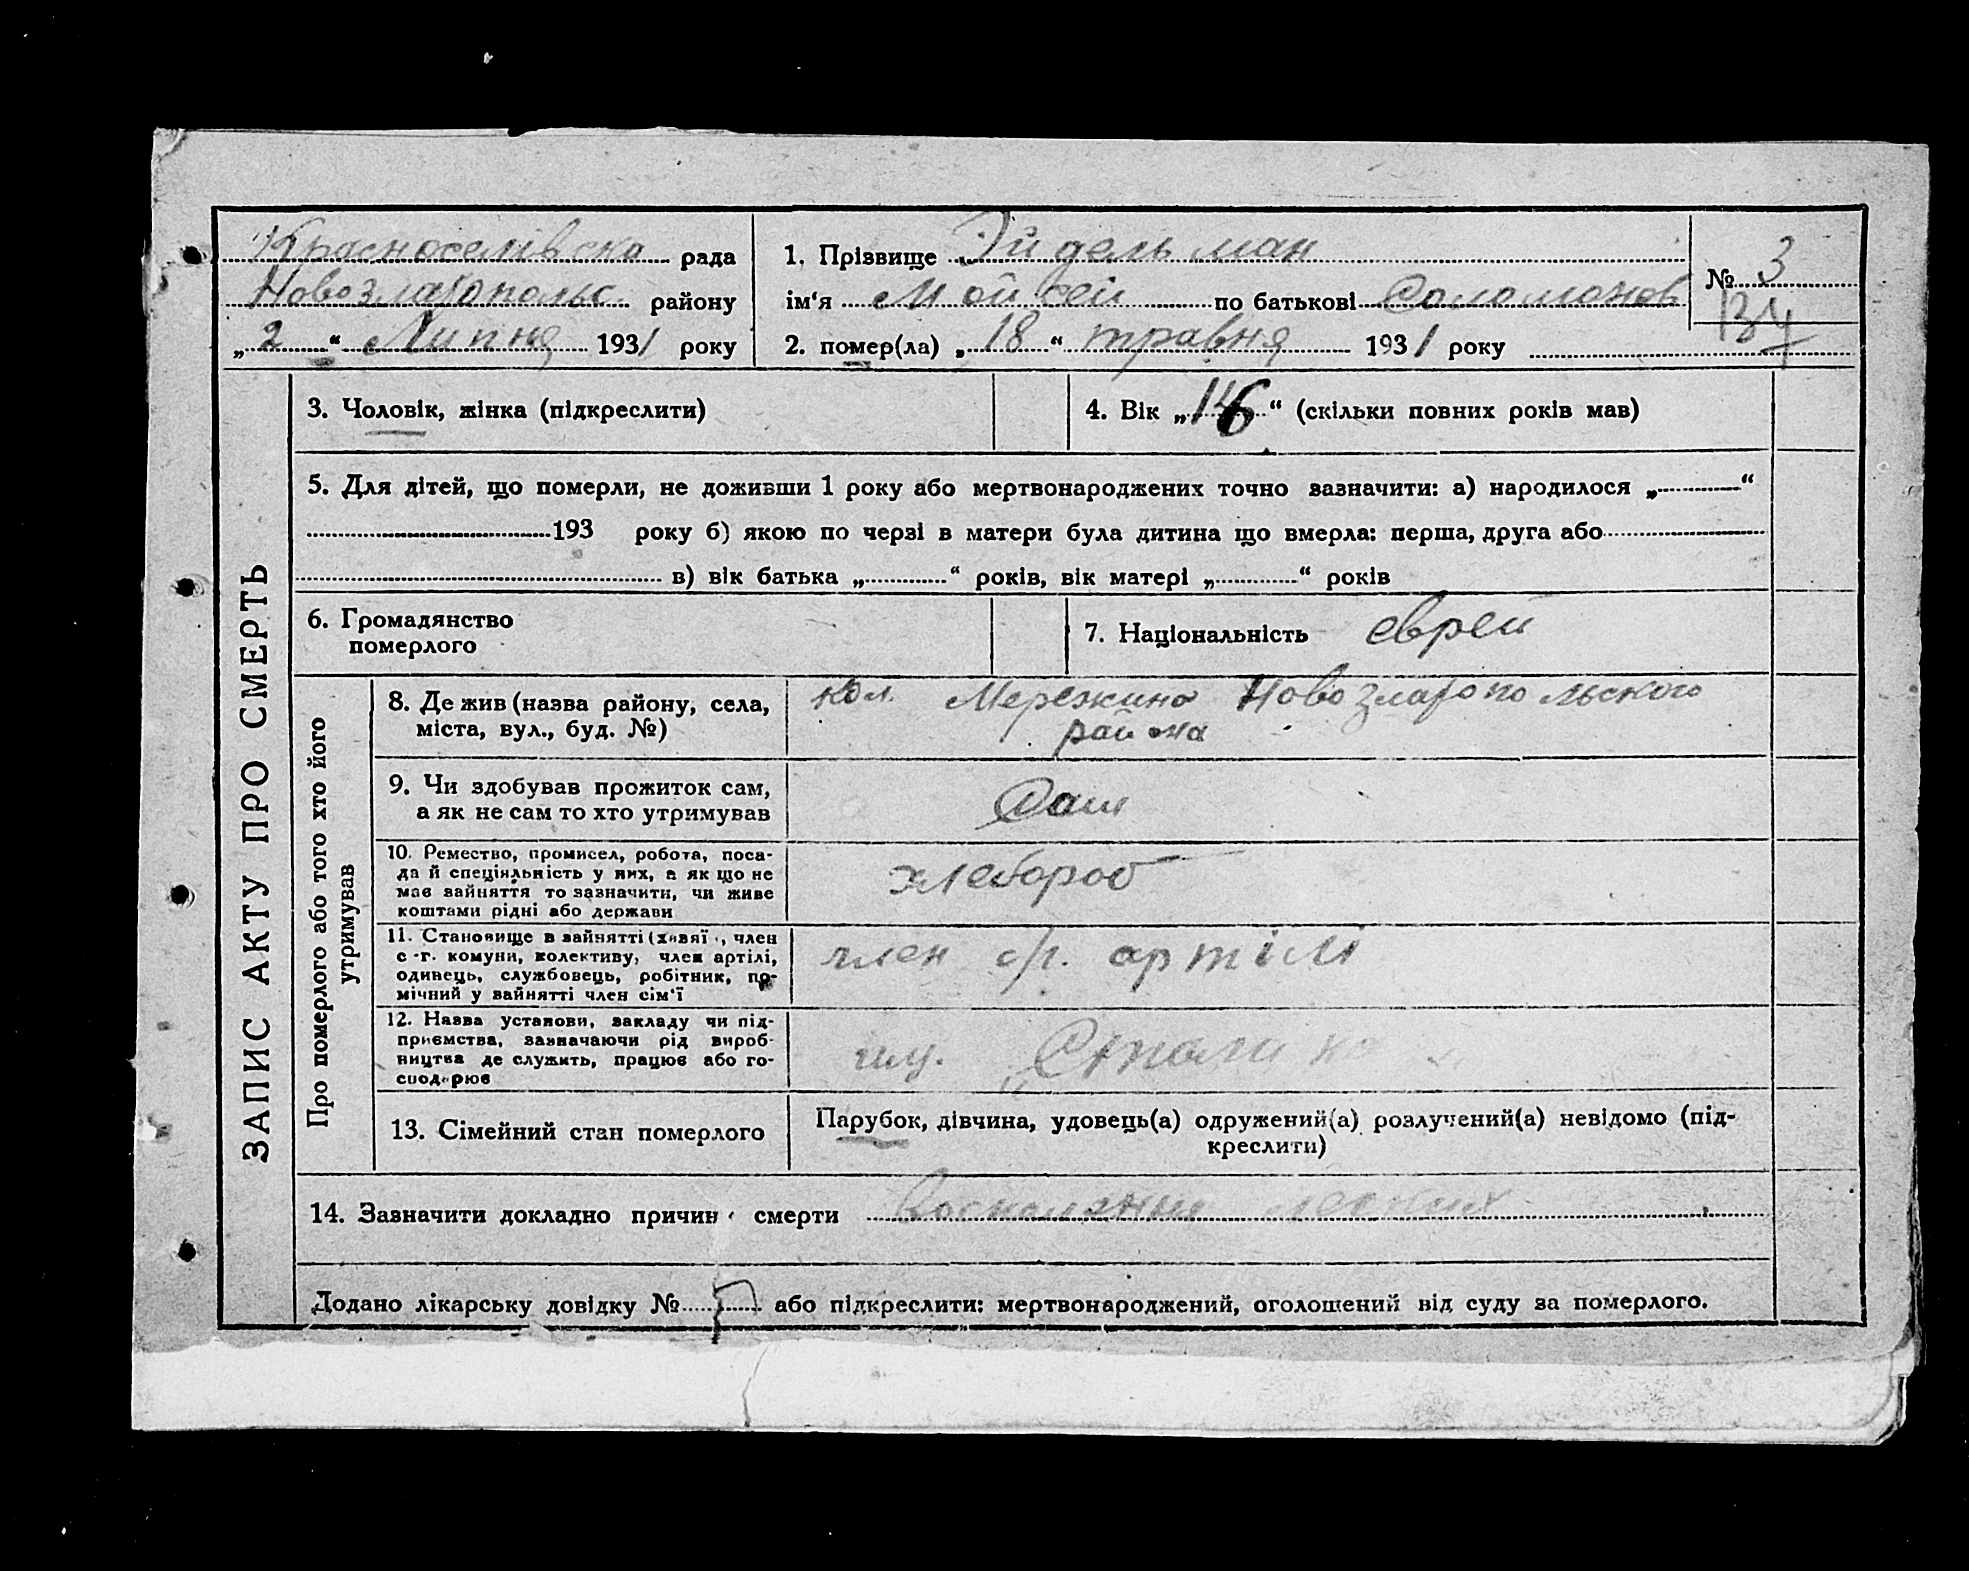 Красноселівска рада
Новозлатопольс. району
„2“ Липня 1931 року
1. Прізвище Эйдельман
ім'я Мойсей по батькові Соломонов
2. помер(ла) „18“ травня 1931 року
№ 3
134
ЗАПИС АКТУ ПРО СМЕРТЬ
3. Чоловік, жінка (підкреслити)
4. Вік „16“ (скільки повних років мав)
5. Для дітей, що померли, не доживши 1 року або мертвонароджених точно зазначити: а) народилося „ “
193 року б) якою по черзі в матери була дитина що вмерла: перша, друга або
в) вік батька „ “ років, вік матері „ “ років
6. Громадянство
померлого
7. Національність еврей
Про померлого або того хто його
утримував
8. Де жив (назва району, села,
міста, вул., буд. №)
кол. Мережино Новозлатопольского
района
9. Чи здобував прожиток сам,
а як не сам то хто утримував
Сам
10. Ремество, промисел, робота, поса-
да й спеціяльність у них, а як що не
має зайняття то зазначити, чи живе
коштами рідні або держави
хлебороб
11. Становище в зайнятті (хазяї , член
с.-г. комуни, колективу, член артілі,
одинець, службовець, робітник, по-
мічний у зайнятті член сім'ї
член с/г. артілі
12. Назва установи, закладу чи під-
приємства, зазначаючи рід вироб-
ництва де служить, працює або го-
сподарює
13. Сімейний стан померлого
Парубок, дівчина, удовець(а) одружений(а) розлучений(а) невідомо (під-
креслити)
14. Зазначити докладно причину смерти воспаления легких
Додано лікарську довідку № або підкреслити: мертвонароджений, оголошений від суду за померлого.